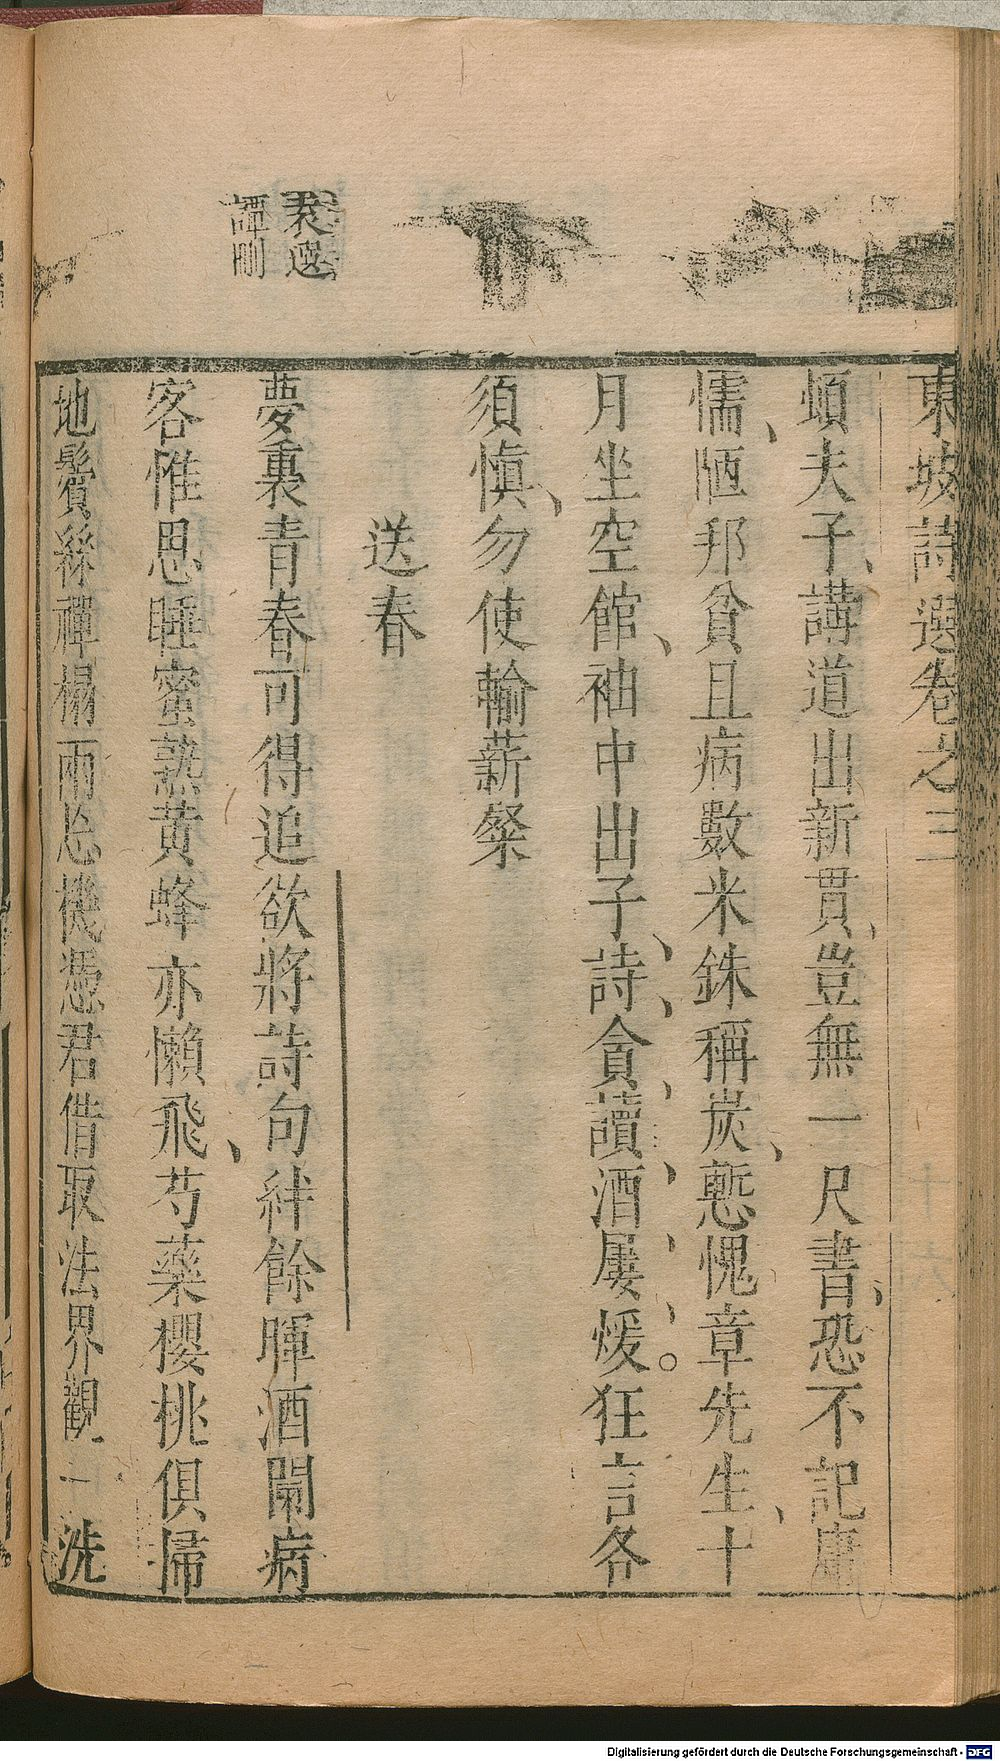 東坡詩選卷之三
頓夫子講道出新貫豈無一尺書恐不記庸
懦陋邦貧且病數米銖稱炭慙愧章先生十
月坐空館袖中出子詩貪讀酒屢煖。狂言各
須慎勿使輸薪粲
送春
袁選
譚刪
夢裏青春可得追欲將詩句絆餘暉酒闌病
客惟思睡蜜熟黃蜂亦懶飛芍藥櫻桃俱掃
地鬢絲禪榻兩忘機憑君借取法界觀一洗
Digitalisierung gefördert durch die Deutsche Forschungsgemeinschaft - DFG